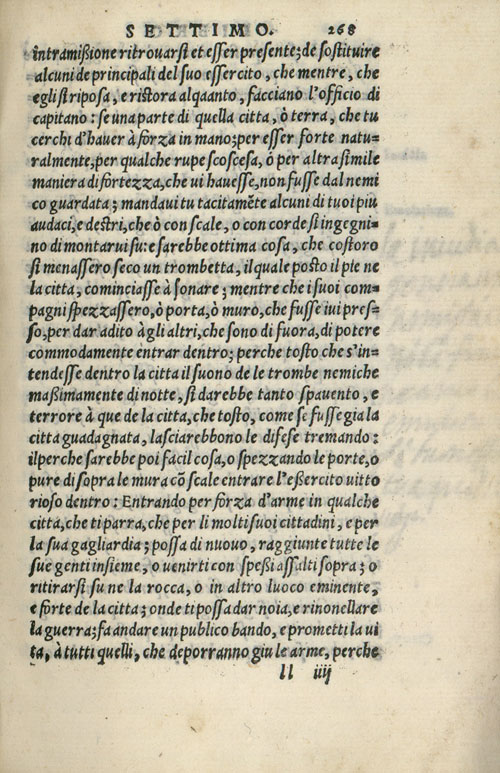 SETTIMO. 268
intramißione ritrovarsi et esser presente; de sostituire
alcuni de principali del suo essercito, che mentre, che
egli si riposa, e ristora alqaanto, facciano l'officio di
capitano: se una parte di quella citta, ò terra, che tu
cerchi d'haver à forza in mano; per esser forte natu=
ralmente, per qualche rupe scoscesa, ò per altra simile
maniera di fortezza, che ui havesse, non fusse dal nemi
co guardata; mandavi tu tacitamēte alcuni di tuoi più
audaci, e destri, che ò con scale, o con corde si ingegni=
no di montarui su: e sarebbe ottima cosa, che costoro
si menassero seco un trombetta, il quale posto il pie ne
la citta, cominciasse à sonare; mentre che i suoi com=
pagni spezzassero, ò porta, ò muro, che fusse iui pres=
so, per dar adito à gli altri, che sono di fuora, di potere
commodamente entrar dentro; perche tosto che s'in=
tendesse dentro la citta il suono de le trombe nemiche
maßimamente di notte, si darebbe tanto spavento, e
terrore à que de la citta, che tosto, come se fusse gia la
citta guadagnata, lasciarebbono le difese tremando:
ilperche sarebbe poi facil cosa, o spezzando le porte, o
pure di sopra le mura cō scale entrare l'eßercito uitto
rioso dentro: Entrando per forza d'arme in qualche
citta, che ti parra, che per li molti suoi cittadini, e per
la sua gagliardia; possa di nuovo, raggiunte tutte le
sue genti insieme, o uenirti con speßi assalti sopra; o
ritirarsi su ne la rocca, o in altro luoco eminente,
e forte de la citta; onde ti possa dar noia, e rinonellare
la guerra; fa andare un publico bando, e prometti la ui
ta, à tutti quelli, che deporranno giu le arme, perche
ll iiij